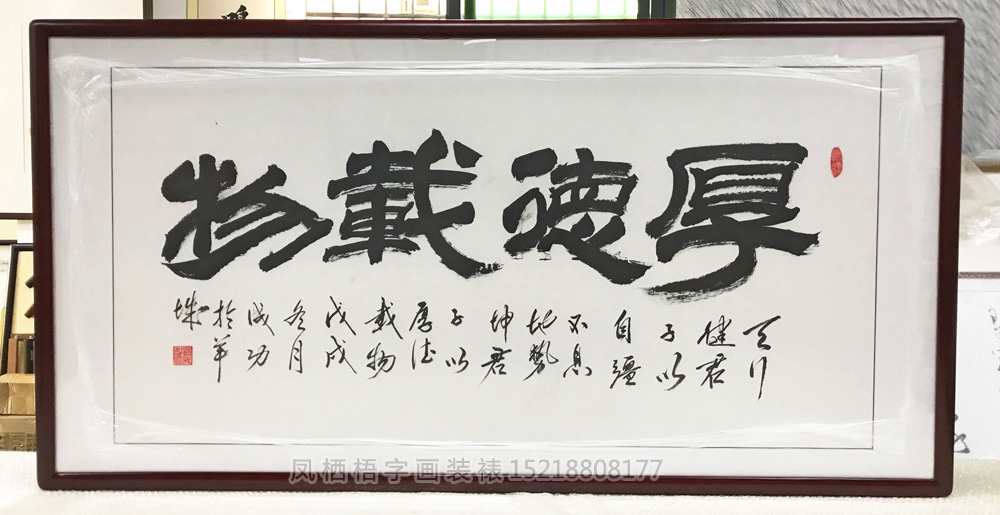 厚德載物
天行
健君
子以
自彊
不息
地勢
坤君
子以
厚德
載物
戊戌
冬月
成功
於羊
城
凤栖梧字画装裱15218808177